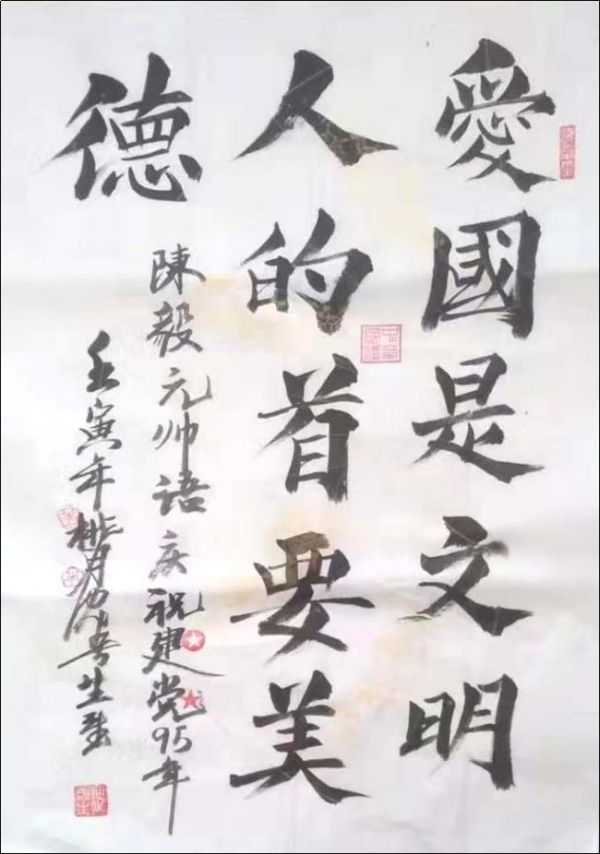 愛國是文明
人的首要美
德
陳毅元帅语庆祝建党95年
壬寅年桃月
生